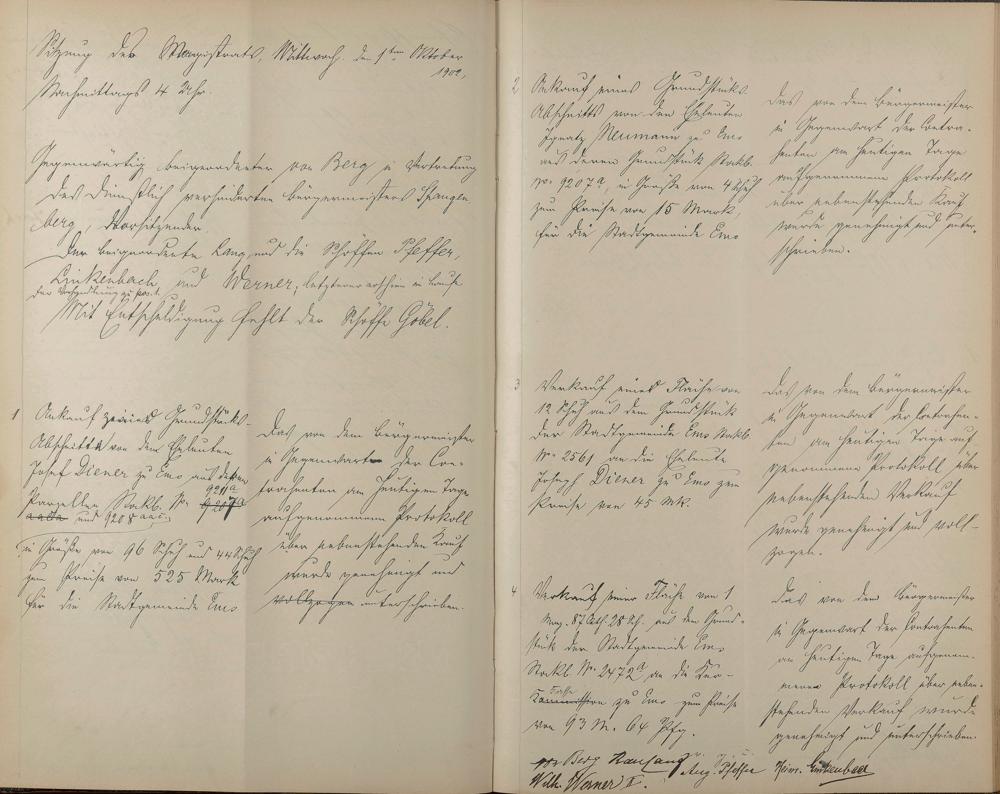 Sitzung des Magistrats, Mittwoch, den 1ten Oktober
1902,
Nachmittags 4 Uhr.
Gegenwärtig: Beigeordneter von Berg in Vertretung
des dienstlich verhinderten Bürgermeisters Spangen
berg, Vorsitzender
Der Beigeordnete Lang und die Schöffen Pfeffer,
Linkenbach und Werner, letzterer erschien im Laufe
der Verhandlung zu pos. 1.
Mit Entschuldigung fehlt der Schöffe Göbel.
1
Ankauf zweier Grundstücks-
Abschnitte von den Eheleuten
Josef Diener zu Ems aus deren
9211a
Parzellen Stockb. No. 9207a
und 9208
in Größe von 96 Schuh und 44 Schuh
zum Preise von 525 Mark
für die Stadtgemeinde Ems
Das von dem Bürgermeister
in Gegenwart der Con-
trahenten am heutigen Tage
aufgenommene Protokoll
über nebenstehenden Kauf
wurde genehmigt und
vollzogen unterschrieben.
2
Ankauf eines Grundstücks-
Abschnitts von den Eheleuten
Ignatz Neumann zu Ems
aus deren Grundstück Stockb.
No. 9207a, in Größe von 4 Schuh
zum Preise von 15 Mark,
für die Stadtgemeinde Ems
Das von dem Bürgermeister
in Gegenwart der Contra-
henten am heutigen Tage
aufgenommene Protokoll
über nebenstehenden Kauf
wurde genehmigt und unter-
schrieben.
3
Verkauf einer Fläche von
12 Schuh aus dem Grundstück
der Stadtgemeinde Ems Stockb.
No. 2561 an die Eheleute
Joseph Diener zu Ems zum
Preise von 45 Mk.
Das von dem Bürgermeister
in Gegenwart der Contrahen-
ten am heutigen Tage auf-
genommene Protokoll über
nebenstehenden Verkauf
wurde genehmigt und voll-
zogen.
4
Verkauf einer Fläche von 1
Mrg. 87 Rth. 28 Sch. aus dem Grund-
stück der Stadtgemeinde Ems
Stockb No. 2472a an die Kur-
Kommission zu Ems zum Preise
von 93 M. 64 Pfg.
Das von dem Bürgermeister
in Gegenwart der Contrahenten
am heutigen Tage aufgenom-
menen Protokoll über neben-
stehenden Verkauf wurde
genehmigt und unterschrieben.
von Berg Aug. Pfeffer Heinr. Linkenbach
Wilh. Werner II.